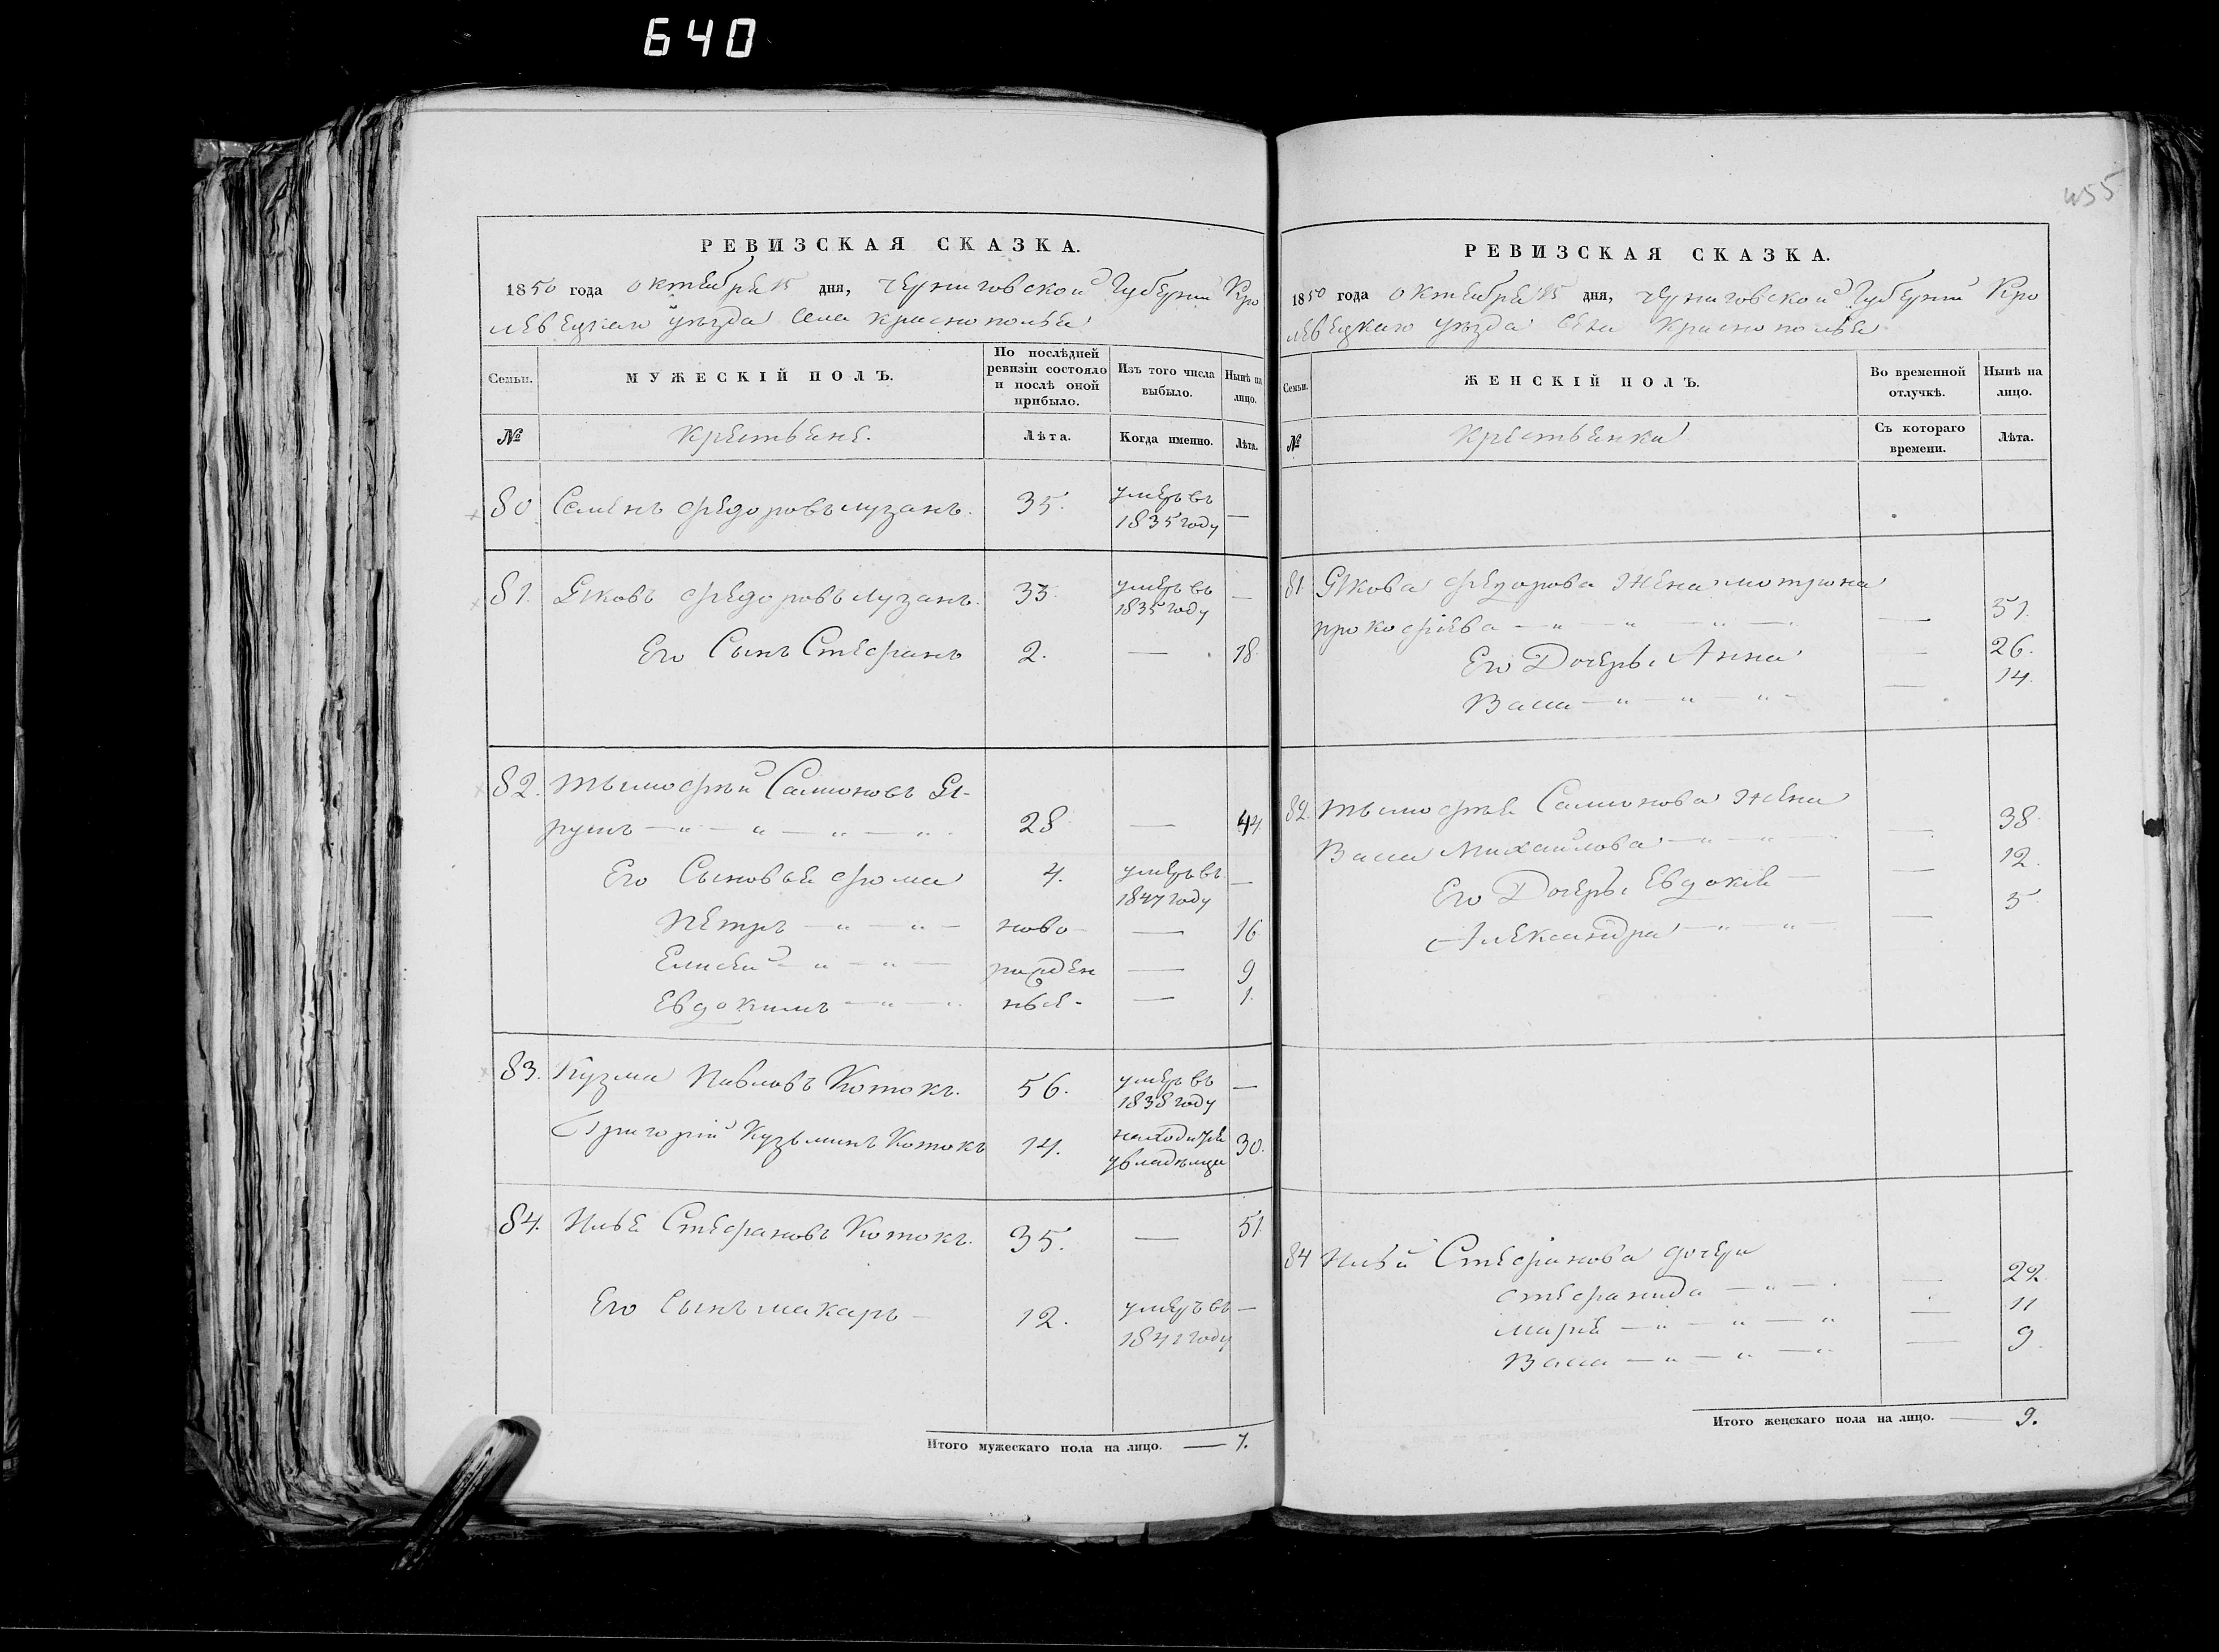 640
455
РЕВИЗСКАЯ СКАЗКА.
1850 года октебра 15 дня, черниговской Губернии Кро
левецкаго уезда Села краснополья
Семьи.
МУЖЕСКІЙ ПОЛЪ.
По послѣдней ревизіи состояло и послѣ оной прибыло.
Изъ того числа выбыло.
Нынѣ на лицо.
№
Крестьяне.
Лѣта.
Когда именно.
Лѣта.
80 Семенъ Федоровъ лузанъ. 35. умеръ въ 1835 году —
81. Яковъ Федоровъ лузанъ. 33. умеръ въ 1835 году —
Его Сынъ Стефанъ 2. — 18
82. тымофѣй Самсоновъ Я-
рушъ — „ — „ — „ — „ 28 — 44
Его Сыновья фома 4. умеръ въ 1847 году —
Петръ — „ — „ — ново — 16
Елисей — „ — „ — рожден — 9
Евдокимъ — „ — „ ные — 1.
83. Кузма Павловъ Котокъ. 56. умеръ въ 1838 году —
Григорій Кузьминъ Котокъ 14. находитца увладельца 30.
84. Илье Стефановъ Котокъ. 35. — 51.
Его Сынъ макаръ — 12. умеръ въ 1841 году —
Итого мужескаго пола на лицо. — 7.
РЕВИЗСКАЯ СКАЗКА.
1850 года октебра 15 дня, черниговской Губерній Кро
левецкаго уезда Села Краснополья
Семьи.
ЖЕНСКІЙ ПОЛЪ.
Во временной отлучкѣ.
Нынѣ на лицо.
№
Крестьянки
Съ котораго времени.
Лѣта.
81 Якова Федорова жена мотрона
прокофіева — „ — „ — „ — — 51.
Его Дочеры Анна — 26.
Васса — „ — „ — „ — — 14.
82. тымофѣе Самсонова жена
Васса Михайлова — „ — „ — 38
Его Дочеры Евдокіе — — 12.
Александра — „ — „ — — 5
84 Ильи Стефанова дочери
стефанида — „ — — 22.
маріе — „ — „ — „ — 11
Васса — „ — „ — „ — 9
Итого женскаго пола на лицо. — 9.